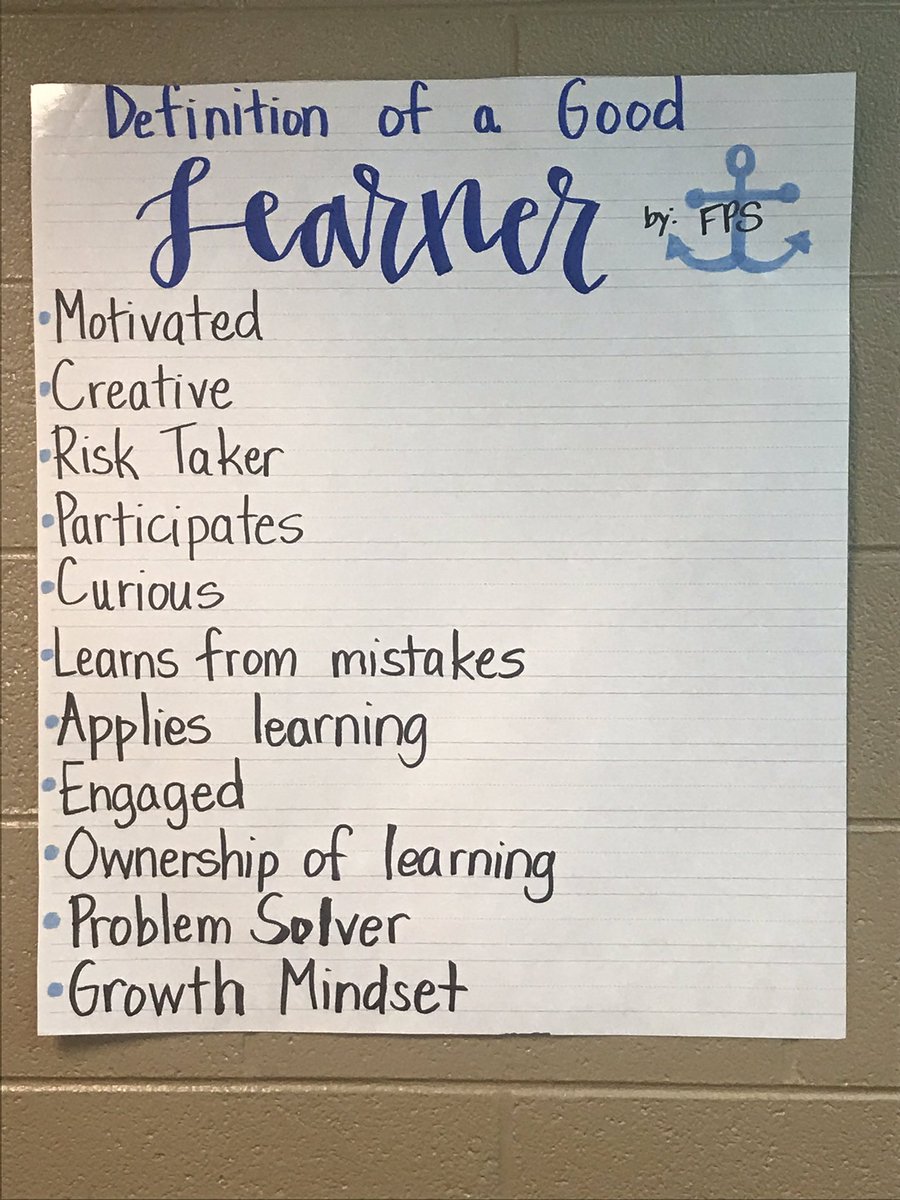 Definition of a Good
Learner by: FPS
• Motivated
• Creative
• Risk Taker
• Participates
• Curious
• Learns from mistakes
• Applies learning
• Engaged
• Ownership of learning
• Problem Solver
• Growth Mindset